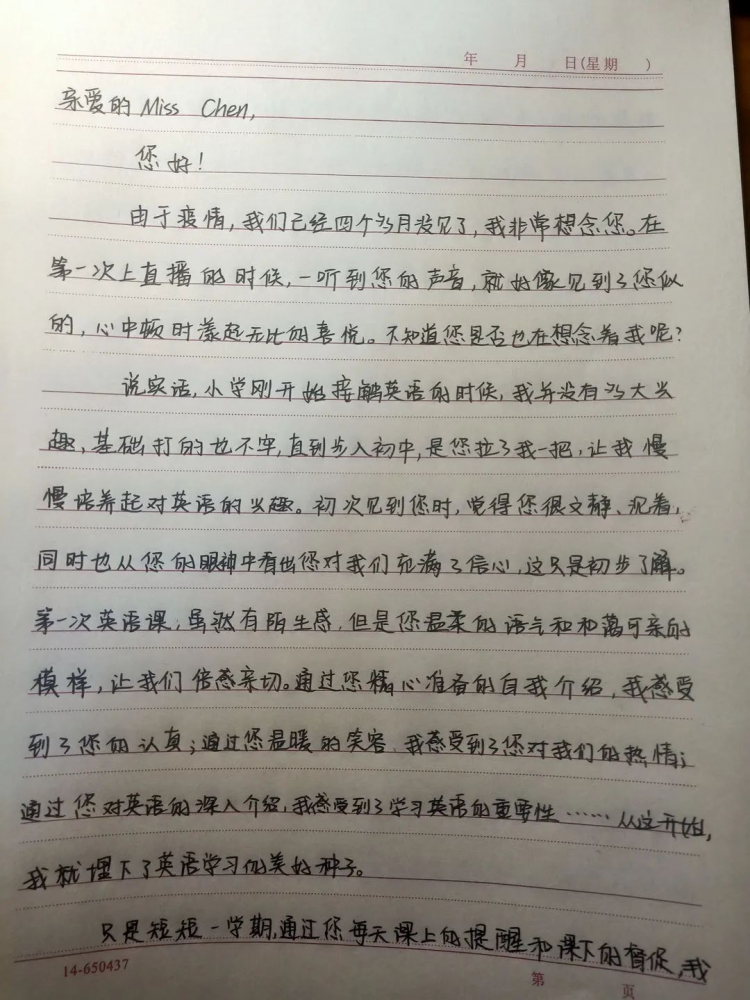 年 月 日(星期 )
亲爱的 Miss Chen,
您好!
由于疫情,我们已经四个多月没见了,我非常想念您。在
第一次上直播的时候,一听到您的声音,就好像见到了您似
的,心中顿时漾起无比的喜悦。不知道您是否也在想念着我呢?
说实话,小学刚开始接触英语的时候,我并没有多大兴
趣,基础打的也不牢,直到步入初中,是您拉了我一把,让我慢
慢培养起对英语的兴趣。初次见到您时,觉得您很文静、沉着,
同时也从您的眼神中看出您对我们充满了信心,这只是初步了解。
第一次英语课,虽然有陌生感,但是您温柔的语气和和蔼可亲的
模样,让我们倍感亲切。通过您精心准备的自我介绍,我感受
到了您的认真;通过您温暖的笑容,我感受到了您对我们的热情;
通过您对英语的深入介绍,我感受到了学习英语的重要性……从这开始,
我就埋下了英语学习的美好种子。
只是短短一学期,通过您每天课上的提醒和课下的督促,我
14-650437 第 页